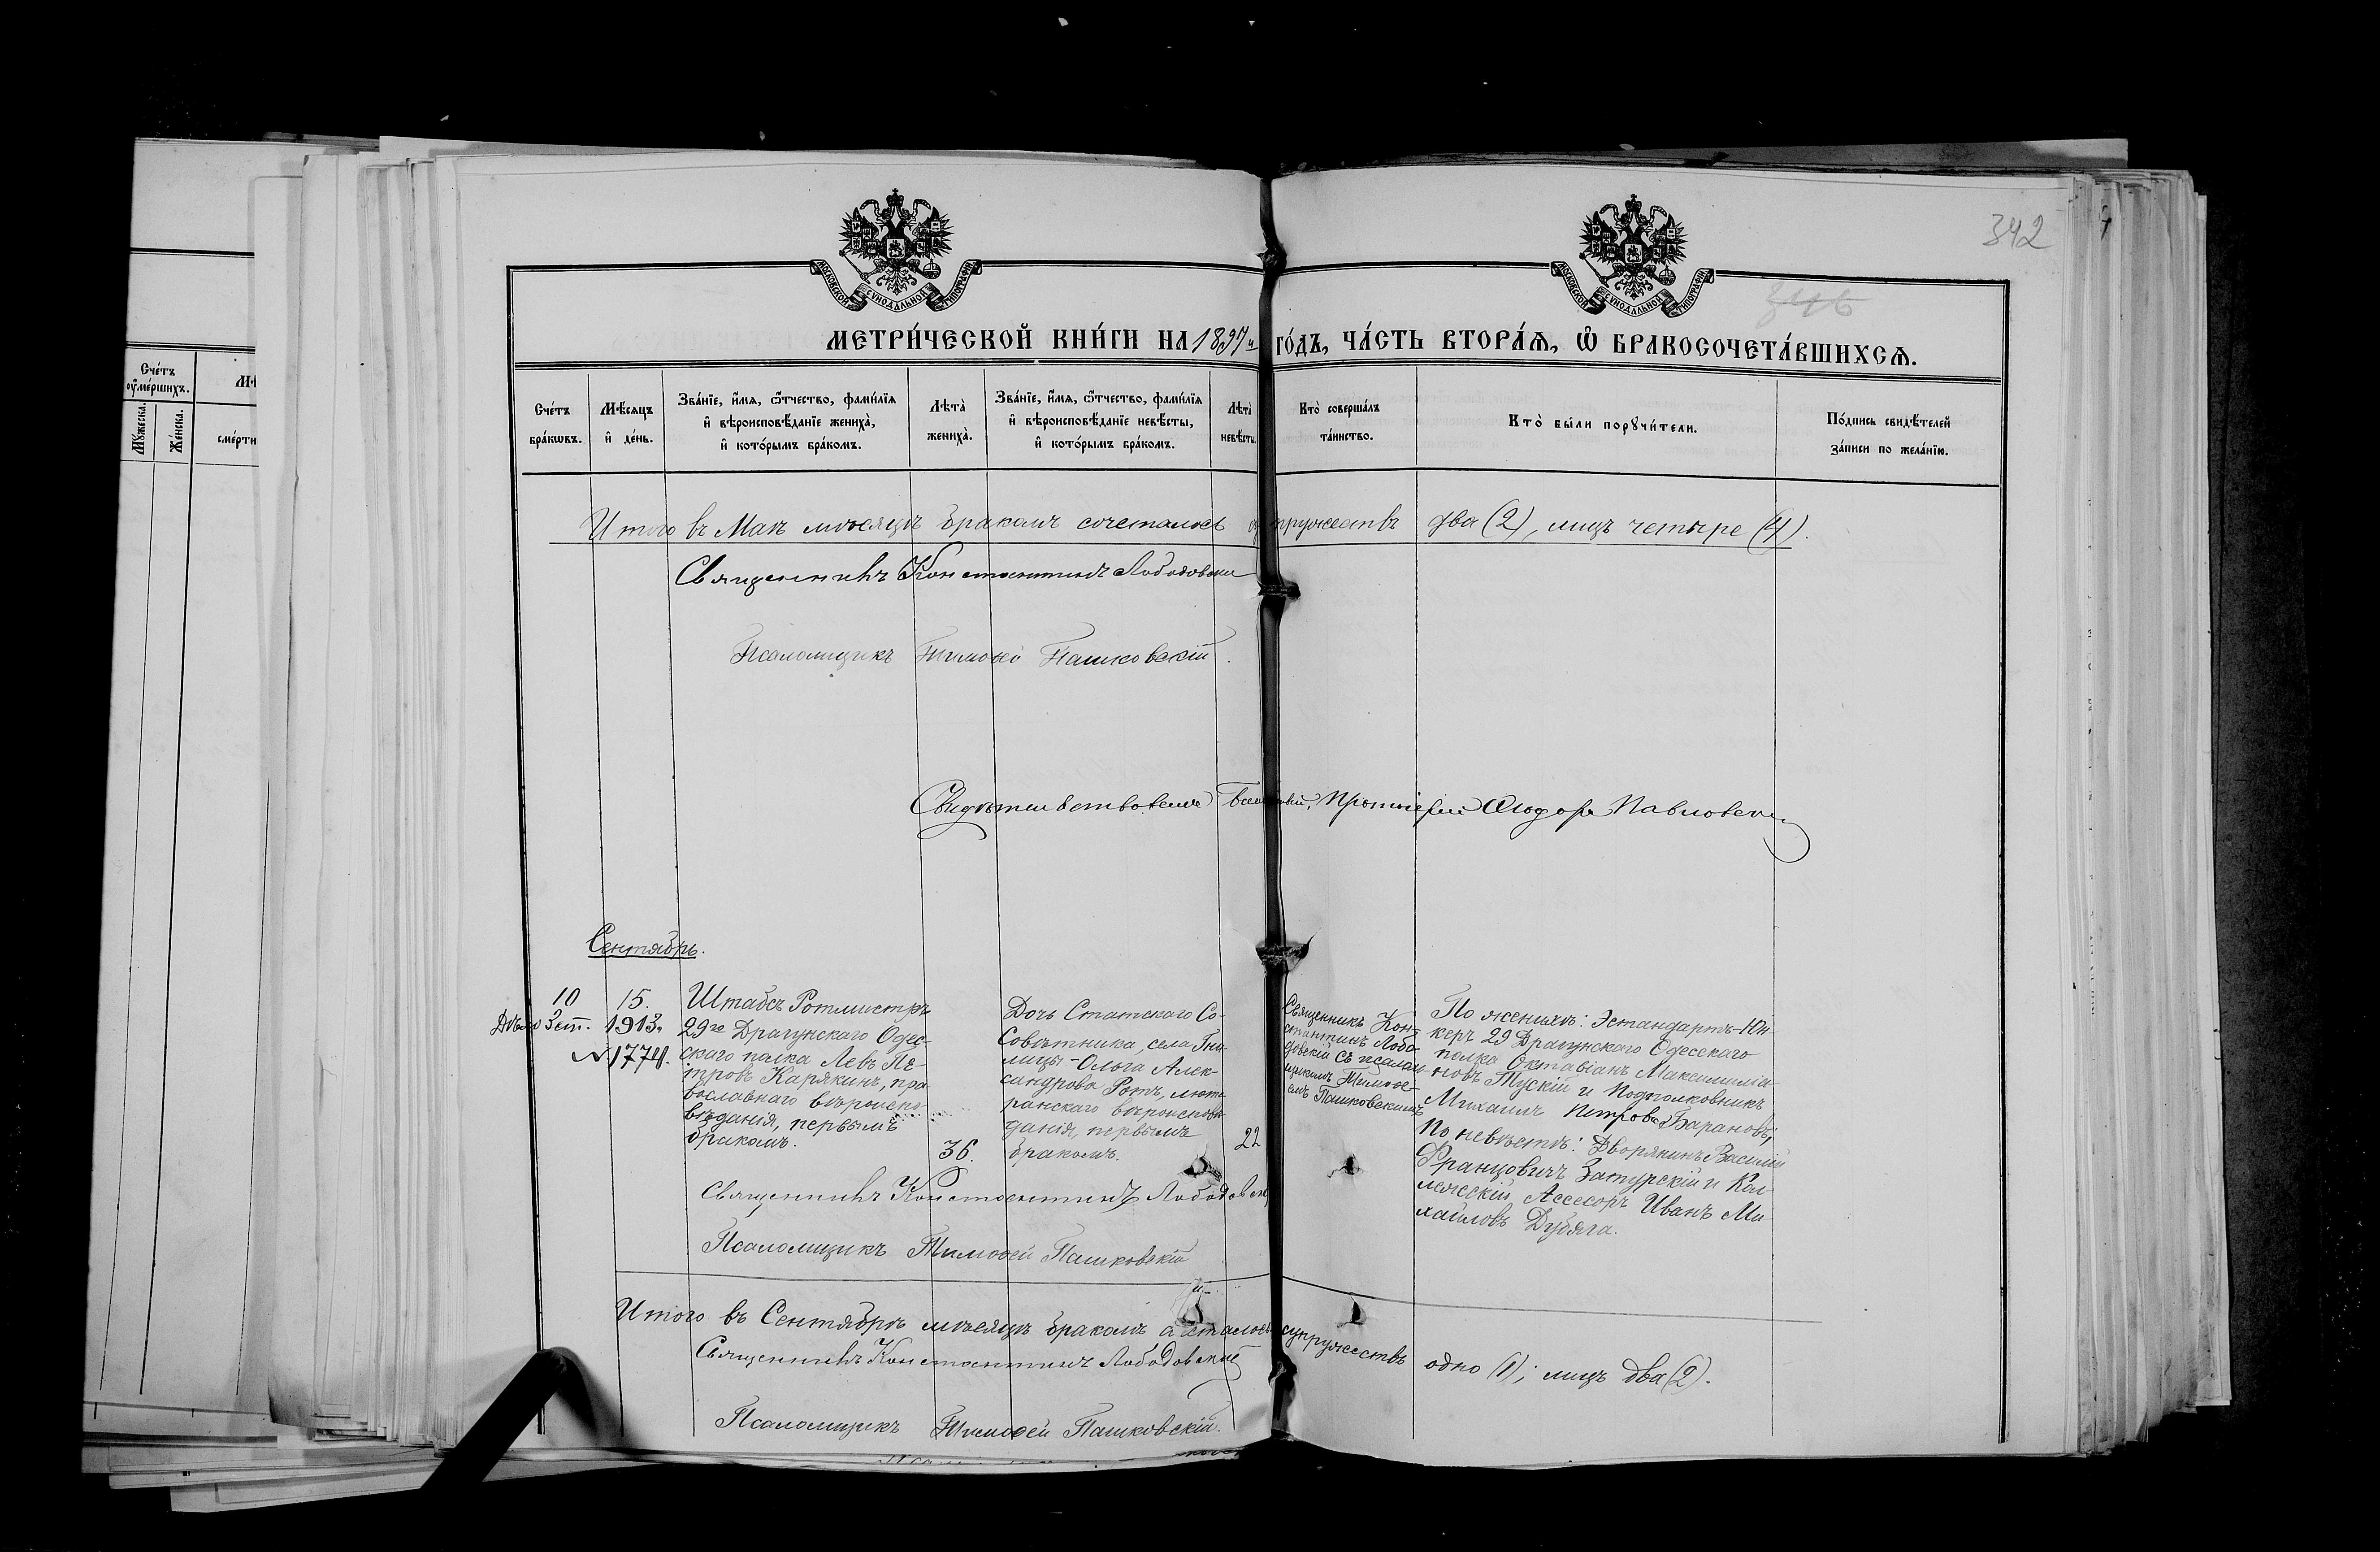 342
МОСКОВСКОЙ СѴНОДАЛЬНОЙ ТИПОГРАФІИ
МОСКОВСКОЙ СѴНОДАЛЬНОЙ ТИПОГРАФІИ
346
МЕТРИ́ЧЕСКОЙ КНИ́ГИ НА 1897 й ГО́ДЪ, ЧА́СТЬ ВТОРА́Ѧ, Ѡ҆ БРАКОСОЧЕТА́ВШИХСѦ.
Сче́тъ
ᲂу҆ме́ршихъ.
Мꙋ́жеска.
Же́нска.
сме́рти
Сче́тъ
бра́кѡвъ.
Мѣ́сяцъ
и҆ де́нь.
Зва́нїе, и҆́мя, ѻ҆́тчество, фами́лїя
и҆ вѣроисповѣ́данїе жениха̀,
и҆ кото́рымъ бра́комъ.
Лѣта̀
жениха̀.
Зва́нїе, и҆́мя, ѻ҆́тчество, фами́лїя
и҆ вѣроисповѣ́данїе невѣ́сты,
и҆ кото́рымъ бра́комъ.
Лѣта̀
невѣ́сты.
Кто̀ соверша́лъ
та́инство.
Кто̀ бы́ли порꙋчи́тели.
По́дпись свидѣ́телей
за́писи по жела́нїю.
Итого въ Маѣ мѣсяцѣ бракомъ сочеталось супружествъ два (2), лицъ четыре (4).
Священникъ Константинъ Лободовскій
Псаломщикъ Тимоѳей Пашковскій.
Свидѣтельствовалъ Протоіерей Ѳеодоръ Павловскій
Сентябрь.
10
15.
1913.
№ 1774.
Штабсъ Ротмистръ
29го Драгунскаго Одес-
скаго полка Левъ Пе-
тровъ Карякинъ, пра
вославнаго вѣроиспо-
вѣданія, первымъ
бракомъ.
36.
Дочь Статскаго Со-
Совѣтника, села Гни-
лицы - Ольга Алек-
сандрова Ротъ, люте
ранскаго вѣроисповѣ
данія, первымъ
бракомъ.
22
Священникъ Кон-
стантинъ Лобо-
довскій съ псалом
щикомъ Тимоѳе-
емъ Пашковскимъ
По женихѣ: Эстандартъ-Юн-
керъ 29 Драгунскаго Одесскаго
полка Октавіанъ Максимиліа-
новъ Тускій и Подполковникъ
Михаилъ Петровъ Барановъ;
По невѣстѣ: Дворянинъ Василій
Францовичъ Затурскій и Кол-
лежскій Ассесоръ Иванъ Ми-
хайловъ Дубяга.
Священникъ Константинъ Лободовскій
Псаломщикъ Тимоѳей Пашковскій
Итого въ Сентябрѣ мѣсяцѣ бракомъ сочеталось супружествъ одно (1); лицъ два (2).
Священникъ Константинъ Лободовскій
Псаломщикъ Тимоѳей Пашковскій.